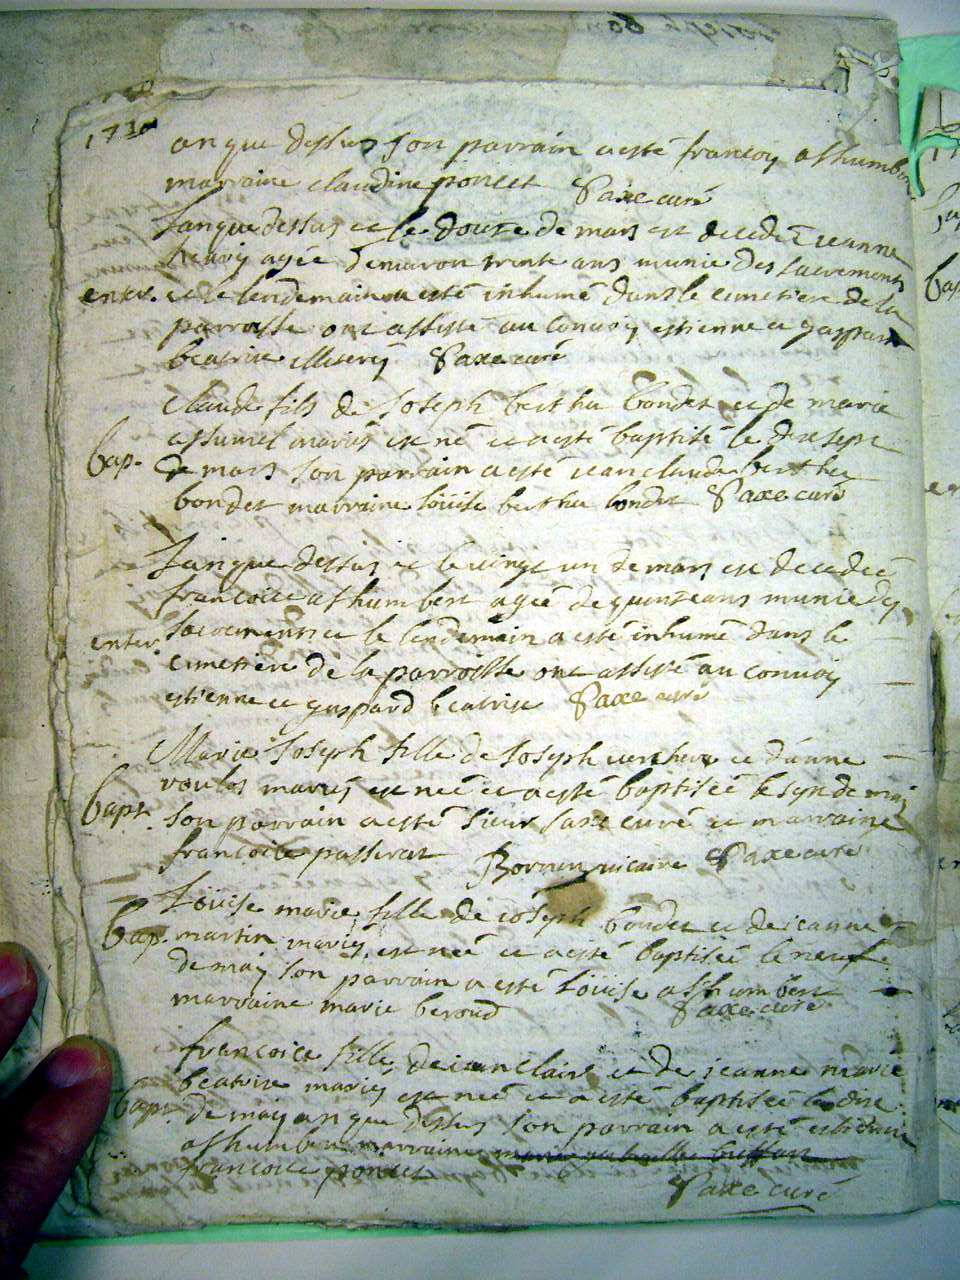 1730
an que dessus son parrain a esté francoy ashumber
marraine claudine poncet Saxe curé
Lan que dessus et le douze de mars est decedé jeanne
agée demaron trente ans munie des sacrements
enter. et le lendemain a esté inhumé dans le cimetiere de la
parroisse ont assisté au convoy estienne et gaspard
beatrise Saxe curé
Claude fils de Joseph berthu bondet et de marie
mariés est né et a esté baptisé le dix sept
bap. de mars son parrain a esté jean claude berthu
bondet marraine Loüise berthu bondet Saxe curé
Lan que dessus et le vingt un de mars est decedeé
francoise ashumbert ageé de quinze ans munie des
enter. sacrements et le lendemain a esté inhumé dans le
cimetiere de la parroisse ont assisté au convoy
estienne et gaspard beatrise Saxe curé
Marie Joseph fille de Joseph et danne
mariés est neé et a esté baptiseé le de may
bapt. son parrain a esté sieur saxe curé et marraine
francoise passerat vicaire Saxe curé
Loüise marie fille de joseph bondet et de jeanne
bap. martin mariés est neé et a esté baptiseé le neuf
de may son parrain a esté Loüise ashumbert
marraine marie beroud Saxe curé
francoise fille de jean claire et de jeanne marie
beatrise mariés est neé et a esté baptiseé le dix
bapt. de may an que dessus son parrain a esté estienne
ashumber marraine
francoise poncet
Saxe curé